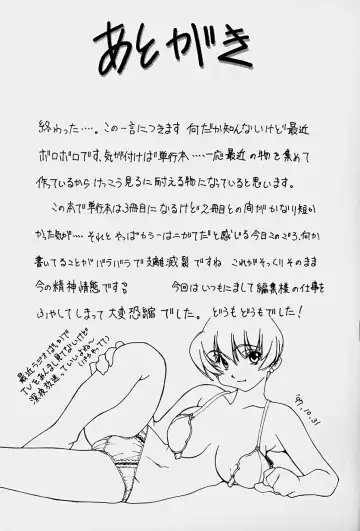 あとがき
終わった‥‥。この一言につきます 何だか知んないけど最近
ボロボロです、気が付けば単行本‥‥一応最近の物を集めて
作っているからけっこう見るに耐える物になっていると思います。
この本で単行本は3冊目になるけど2冊目との間がかなり短か
かった気が‥‥ それとやっぱもう一ニがてだと感じる今日このごろ、何か
書いてることがバラバラで支離滅裂ですね これがそっくりそのまま
今の精神情態です？ 今回はいつもにまして編集様の仕事を
ふやしてしまって大変恐縮でした。どうもどうもでした！
最近ラジオばっかで
TVをあんまし見てないけど
深夜放送っていいよね〜
'97.10.31